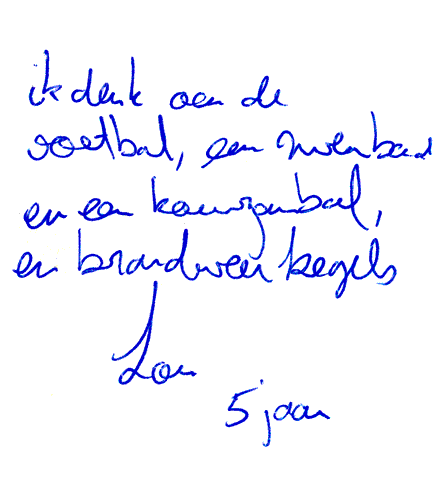 ik denk aan de
voetbal, een zwembad
en een kauwgumbal,
en brandweer kegels
Lou
5 jaar